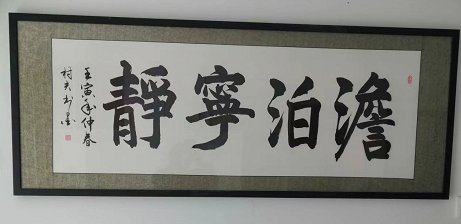 澹泊寧靜
壬寅年仲春
村夫书